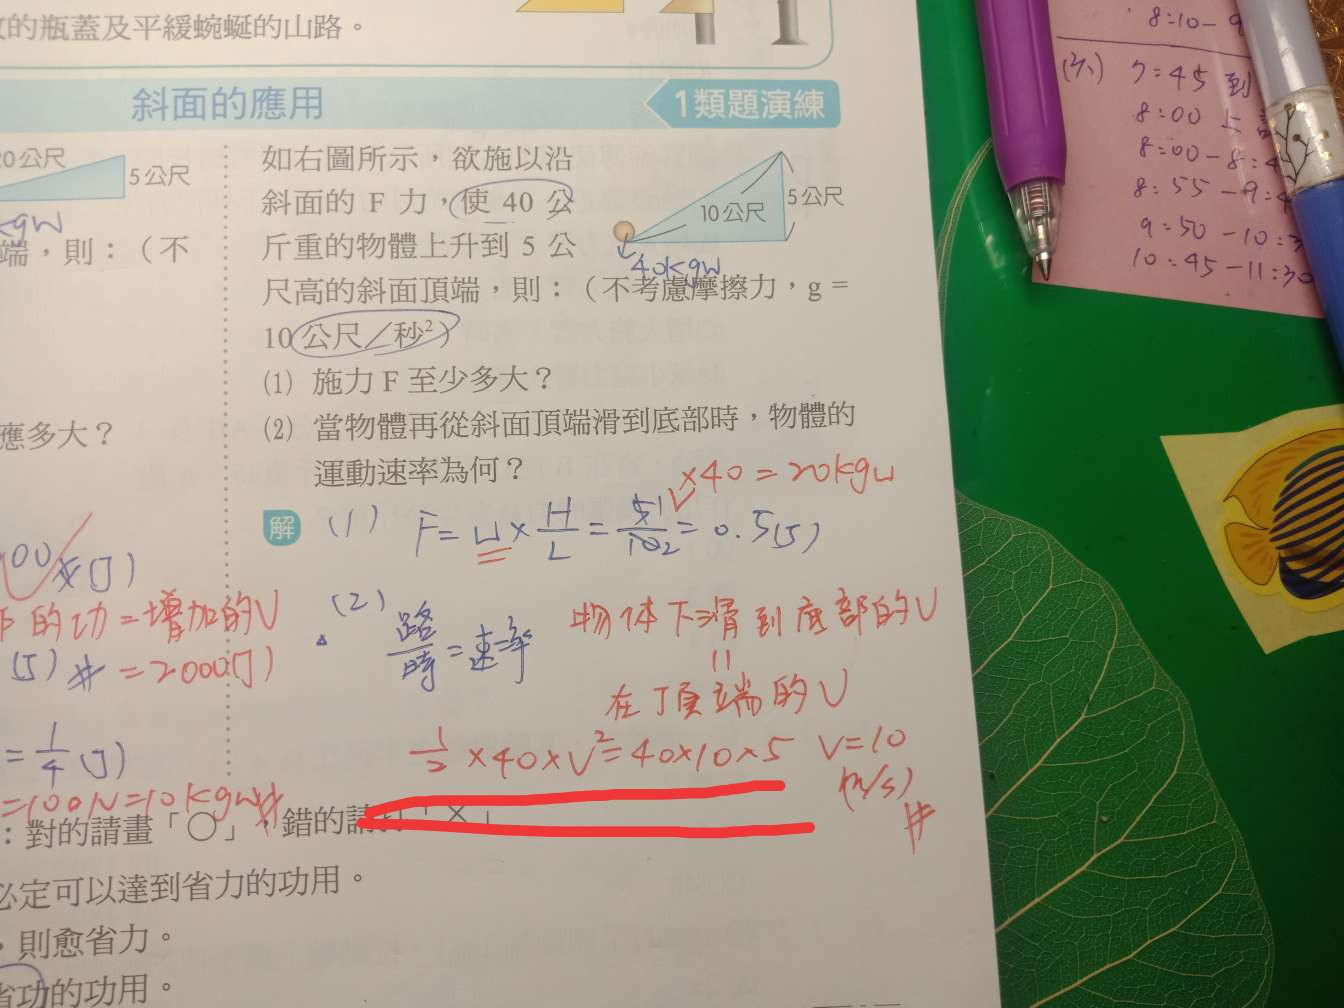 的瓶蓋及平緩蜿蜒的山路。
斜面的應用
1類題演練
20公尺
5公尺
kgw
端,則:(不
應多大?
如右圖所示,欲施以沿
斜面的 F 力,使 40 公
斤重的物體上升到 5 公
尺高的斜面頂端,則:(不考慮摩擦力,g =
10 公尺/秒²)
10公尺
5公尺
40kgw
⑴ 施力 F 至少多大?
⑵ 當物體再從斜面頂端滑到底部時,物體的
運動速率為何?
×40 = 20kgw
解
(1) F = W × H/L = 5/10 = 1/2 = 0.5(J)
(2) 路/時 = 速率
物体下滑到底部的U
=
在頂端的U
1/2 × 40 × V² = 40×10×5 V=10
(m/s)
#
的功=增加的U
(J) # = 2000(J)
= 1/4 (J)
=100N=10kgw#
:對的請畫「○」,錯的請打「×」
必定可以達到省力的功用。
,則愈省力。
省功的功用。
8:10 - 9
7:45 到
8:00 上
8:00 - 8:4
8:55 - 9:4
9:50 - 10:3
10:45 - 11:30